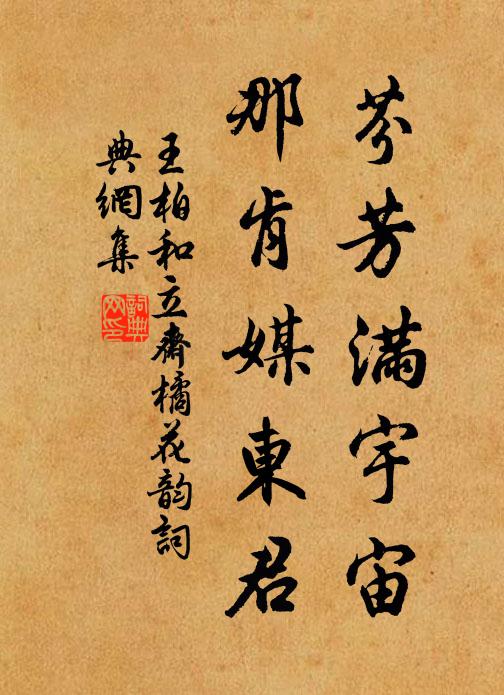 芬芳滿宇宙
那肯媒東君
王柏和立齋橘花韵詞
典網集
詞典網印